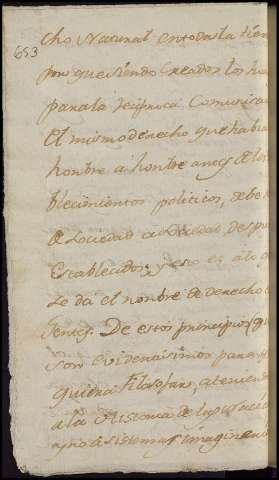 653
cho Natural en toda la tier
por que siendo creados los ho
para la reciproca Comunica
El mismo derecho que habia
honbre a honbre antes de los
blecimientos politicos, debe
de Sociedad a Sociedad despu
Establecidos; y esto es a lo q
Le da el nonbre de derecho
Jentes. De estos principios (q
son evidentisimos para
quiera Filosofar, atenien
a la Historia de las Socie
y no a sistemas imaginari